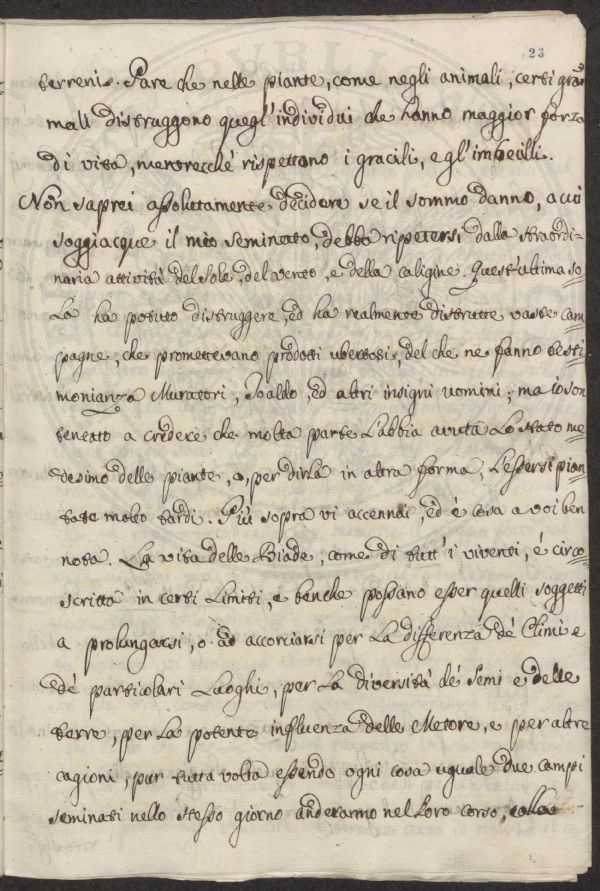 23
terreni. Pare che nelle piante, come negli animali, certi gran
mali distruggono quegl'individui che hanno maggior forza
di vita, mentrecchè rispettano i gracili, e gl'imbecilli.
Non saprei assolutamente decidere se il sommo danno, a cui
soggiacque il mio seminato, debba ripetersi dalla straordi=
naria attività del Sole, del vento, e della caligine. Quest'ultima so
la ha potuto distruggere, ed ha realmente distrutte vaste cam
pagne, che promettevano prodotti ubertosi, del che ne fanno testi
monianza Muratori, Toaldo, ed altri insigni uomini; ma io son
tentato a credere che molta parte l'abbia avuta lo stato me
desimo delle piante, o, per dirla in altra forma, l'essersi pian
tate molto tardi. Più sopra vi accennai, ed è cosa a voi ben
nota. La vita delle Biade, come di tutt'i viventi, è circo
scritta in certi limiti, e benche possano esser quelli soggetti
a prolungarsi, o ad accorciarsi per la differenza de' Climi e
de' particolari Luoghi, per la diversità de' Semi e delle
terre, per la potente influenza delle Metore, e per altre
cagioni, pur tutta volta essendo ogni cosa uguale due campi
seminati nello stesso giorno anderanno nel loro corso, colla